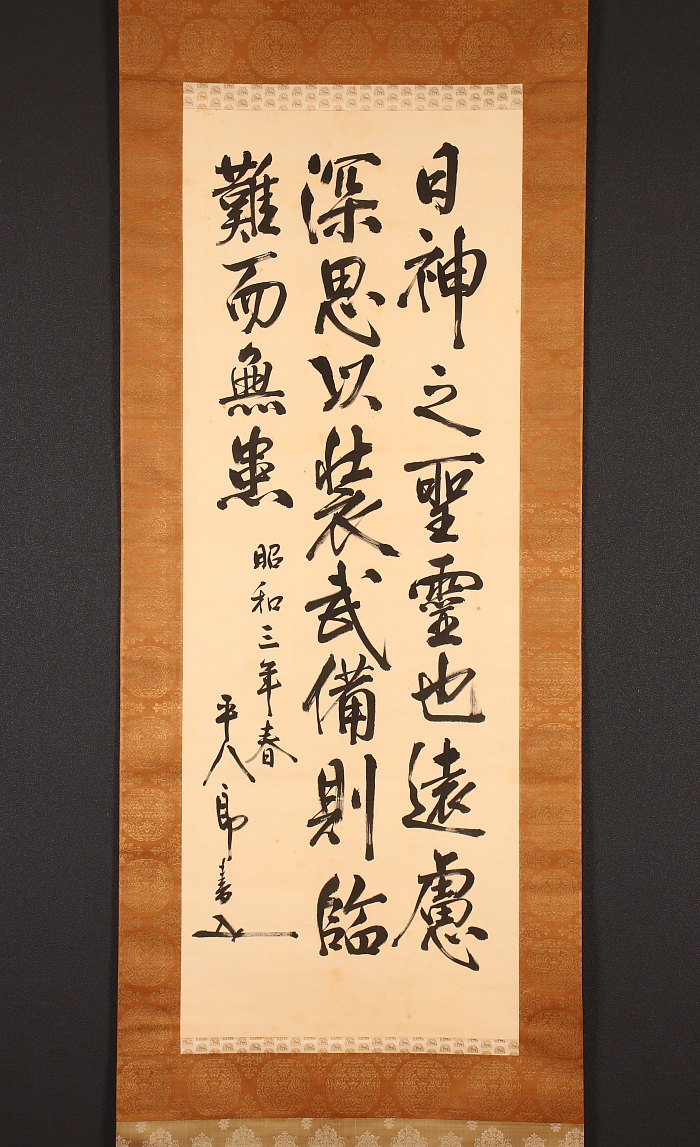 日神之聖靈也遠慮
深思以裝武備則臨
難而無患
昭和三年春
平八郎書